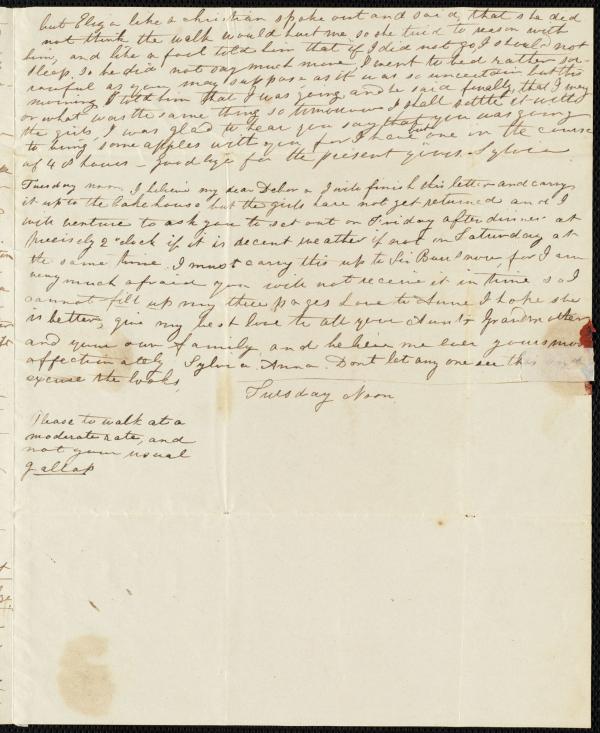 but Eliza like a christian spoke out and said, that she did
not think the walk would hurt me, so she tried to reason with
him, and like a fool told him that if I did not go, I should not
sleep, so he did not say much more. I went to bed rather sor-
rowful as you may suppose as it was so uncertain but this
morning I told him that I was going, and he said finally, that I may
or what was the same thing so tomorrow I shall settle it with
the girls, I was glad to hear you say that you was going
to bring some apples with you for I have but one in the course
of 48 hours - Good bye for the present yours. Sylvia
Tuesday noon, I believe my dear Debora I will finish this letter and carry
it up to the bake house but the girls have not yet returned and I
will venture to ask you to set out on Friday after dinner at
precisely 2 oclock if it is decent weather if not on Saturday at
the same time. I must carry this up to for I am
very much afraid you will not receive it in time so I
cannot fill up my three pages Love to Anne I hope she
is better, give my best love to all your Aunts Grandmother
and your own family, and believe me ever yours most
affectionately Sylvia Anna. Dont let any one see this and
excuse the looks,
Tuesday Noon
Please to walk at a
moderate rate, and
not your usual
gallop